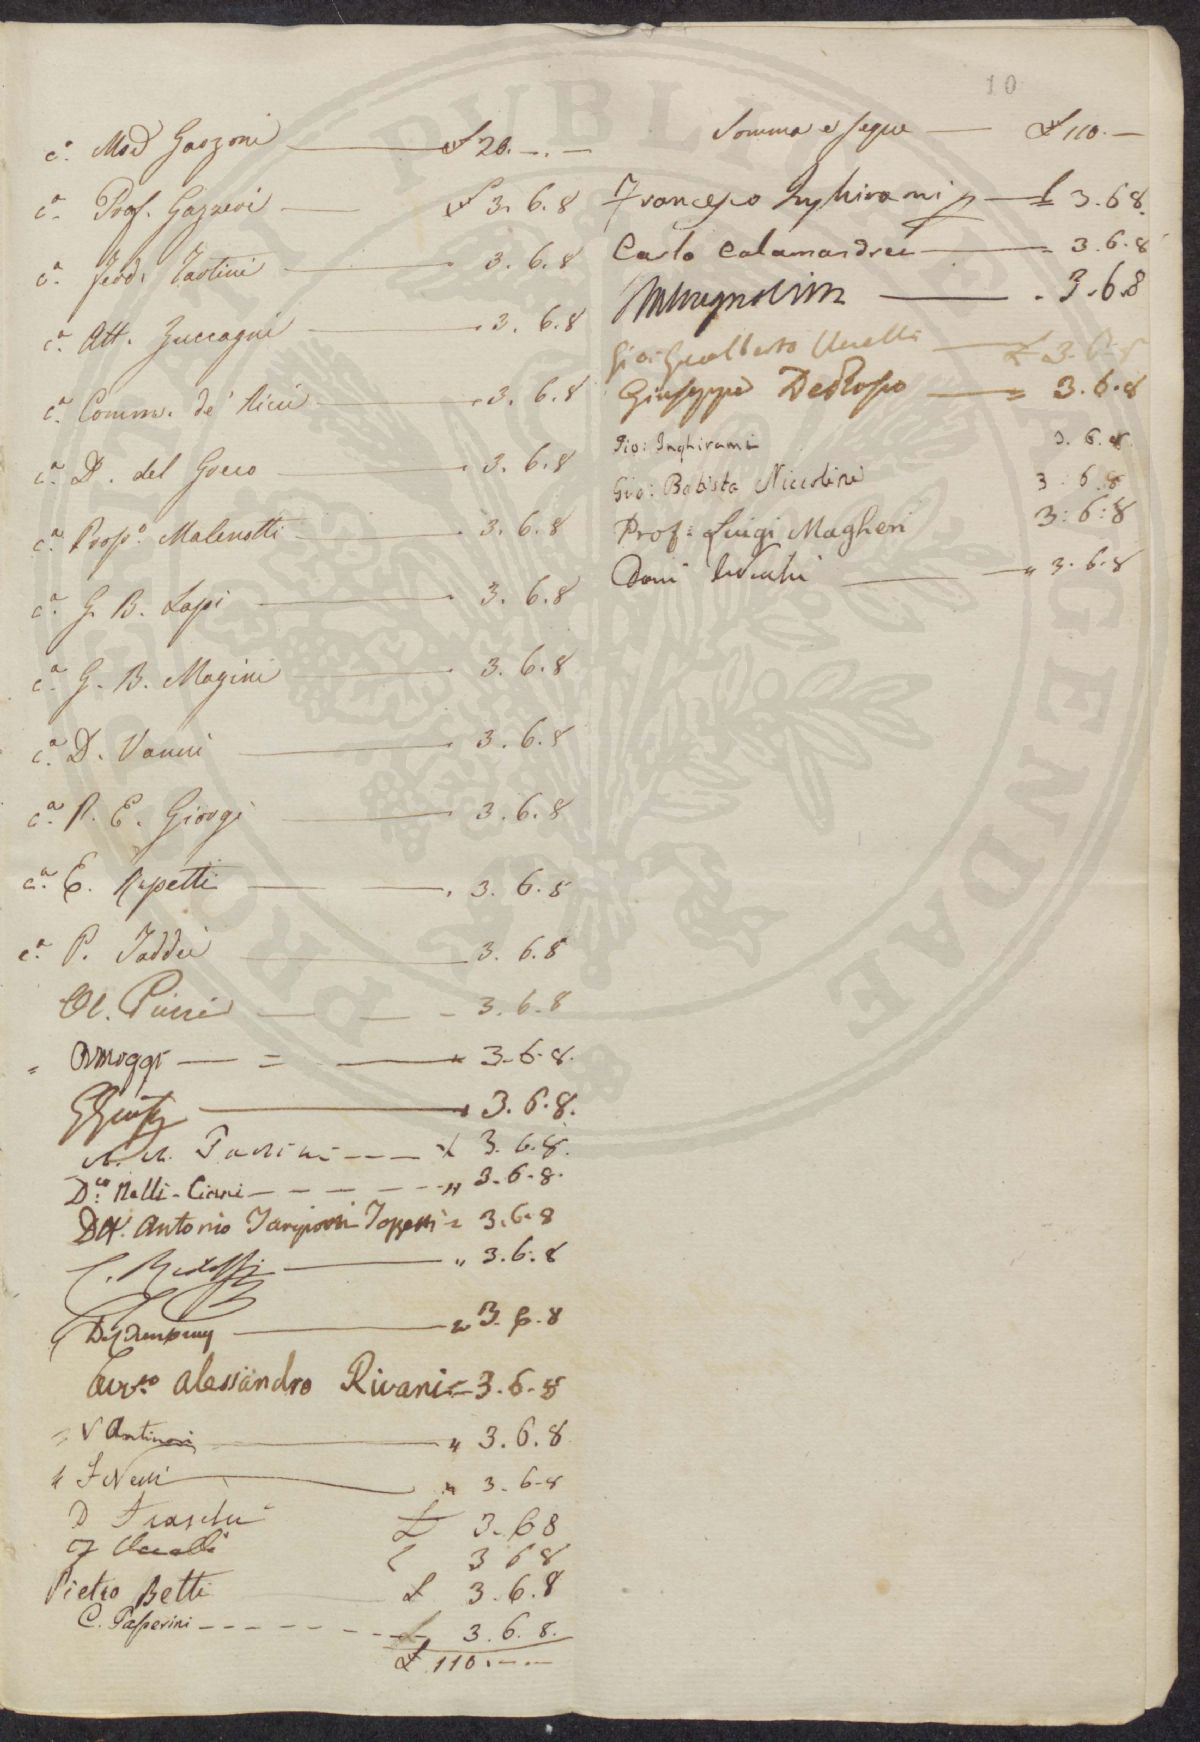 10
cª. Mod Garzoni £ 20. — . —
cª. Prof. Gazzeri £ 3. 6. 8
cª. Ferd. Tartini 3. 6. 8
cª. Att. Zuccagni 3. 6. 8
cª. Comm. de' Ricci 3. 6. 8
cª. D. del Greco 3. 6. 8
cª. Propº. Malenotti 3. 6. 8
cª. G. B. Lapi 3. 6. 8
cª. G. B. Magini 3. 6. 8
cª. D. Vanni 3. 6. 8
cª. R. E. Giorgi 3. 6. 8
cª. E. Repetti 3. 6. 8
cª. P. Taddei 3. 6. 8
Ol. Pucci 3. 6. 8
3. 6. 8.
3. 6. 8.
3. 6. 8.
D.co Nelli-Ciani 3. 6. 8.
Dtt. Antonio Targioni Tozzetti 3. 6. 8
C. Ridolfi 3. 6. 8
3. 6. 8
Avv.to Alessandro Rivani 3. 6. 8
V Antinori 3. 6. 8
F Nelli 3. 6. 8
D £ 3. 6 8
3 6 8
Pietro Betti £ 3. 6. 8
C. Passerini £ 3. 6. 8.
£ 110. — . —
Somma e segue £ 110. —
Francesco Inghirami £ 3. 6 8.
Carlo Calamandrei 3. 6. 8
3. 6. 8
Gio: Gualberto Uccelli £ 3. 6. 8
Giuseppe Del Rosso 3. 6. 8
Gio: Inghirami 3. 6. 8.
Gio: Batista Niccolini 3 : 6. 8
Prof: Luigi Magheri 3: 6: 8
3. 6. 8
PUBLICAE
PROSPERITATI
AUGENDAE